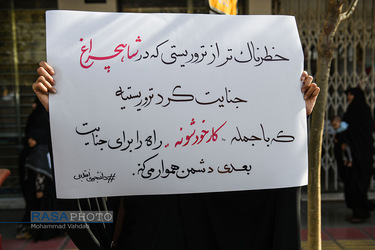 خطرناک تر از تروریستی که در شاهچراغ
جنایت کرد تروریستیه
که با جمله "کار خودشونه" راه را برای جنایت
بعدی دشمن هموار می‌کند.
RASAPHOTO
Mohammad Vahdati